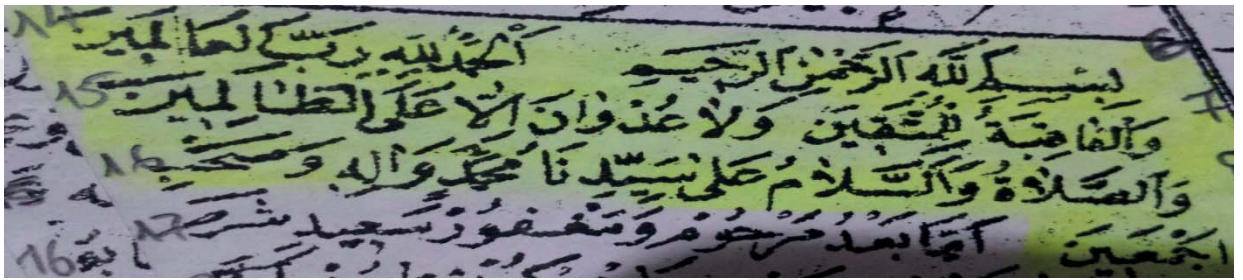 بسم الله الرحمن الرحيم الحمد لله رب العالمين 14
والعاقبة للمتقين ولا عدوان الا على الظالمين 15
والصلاة والسلام على سيدنا محمد واله وصحبه 16
اجمعين اما بعد مرحوم ومغفور سعيد 17
16